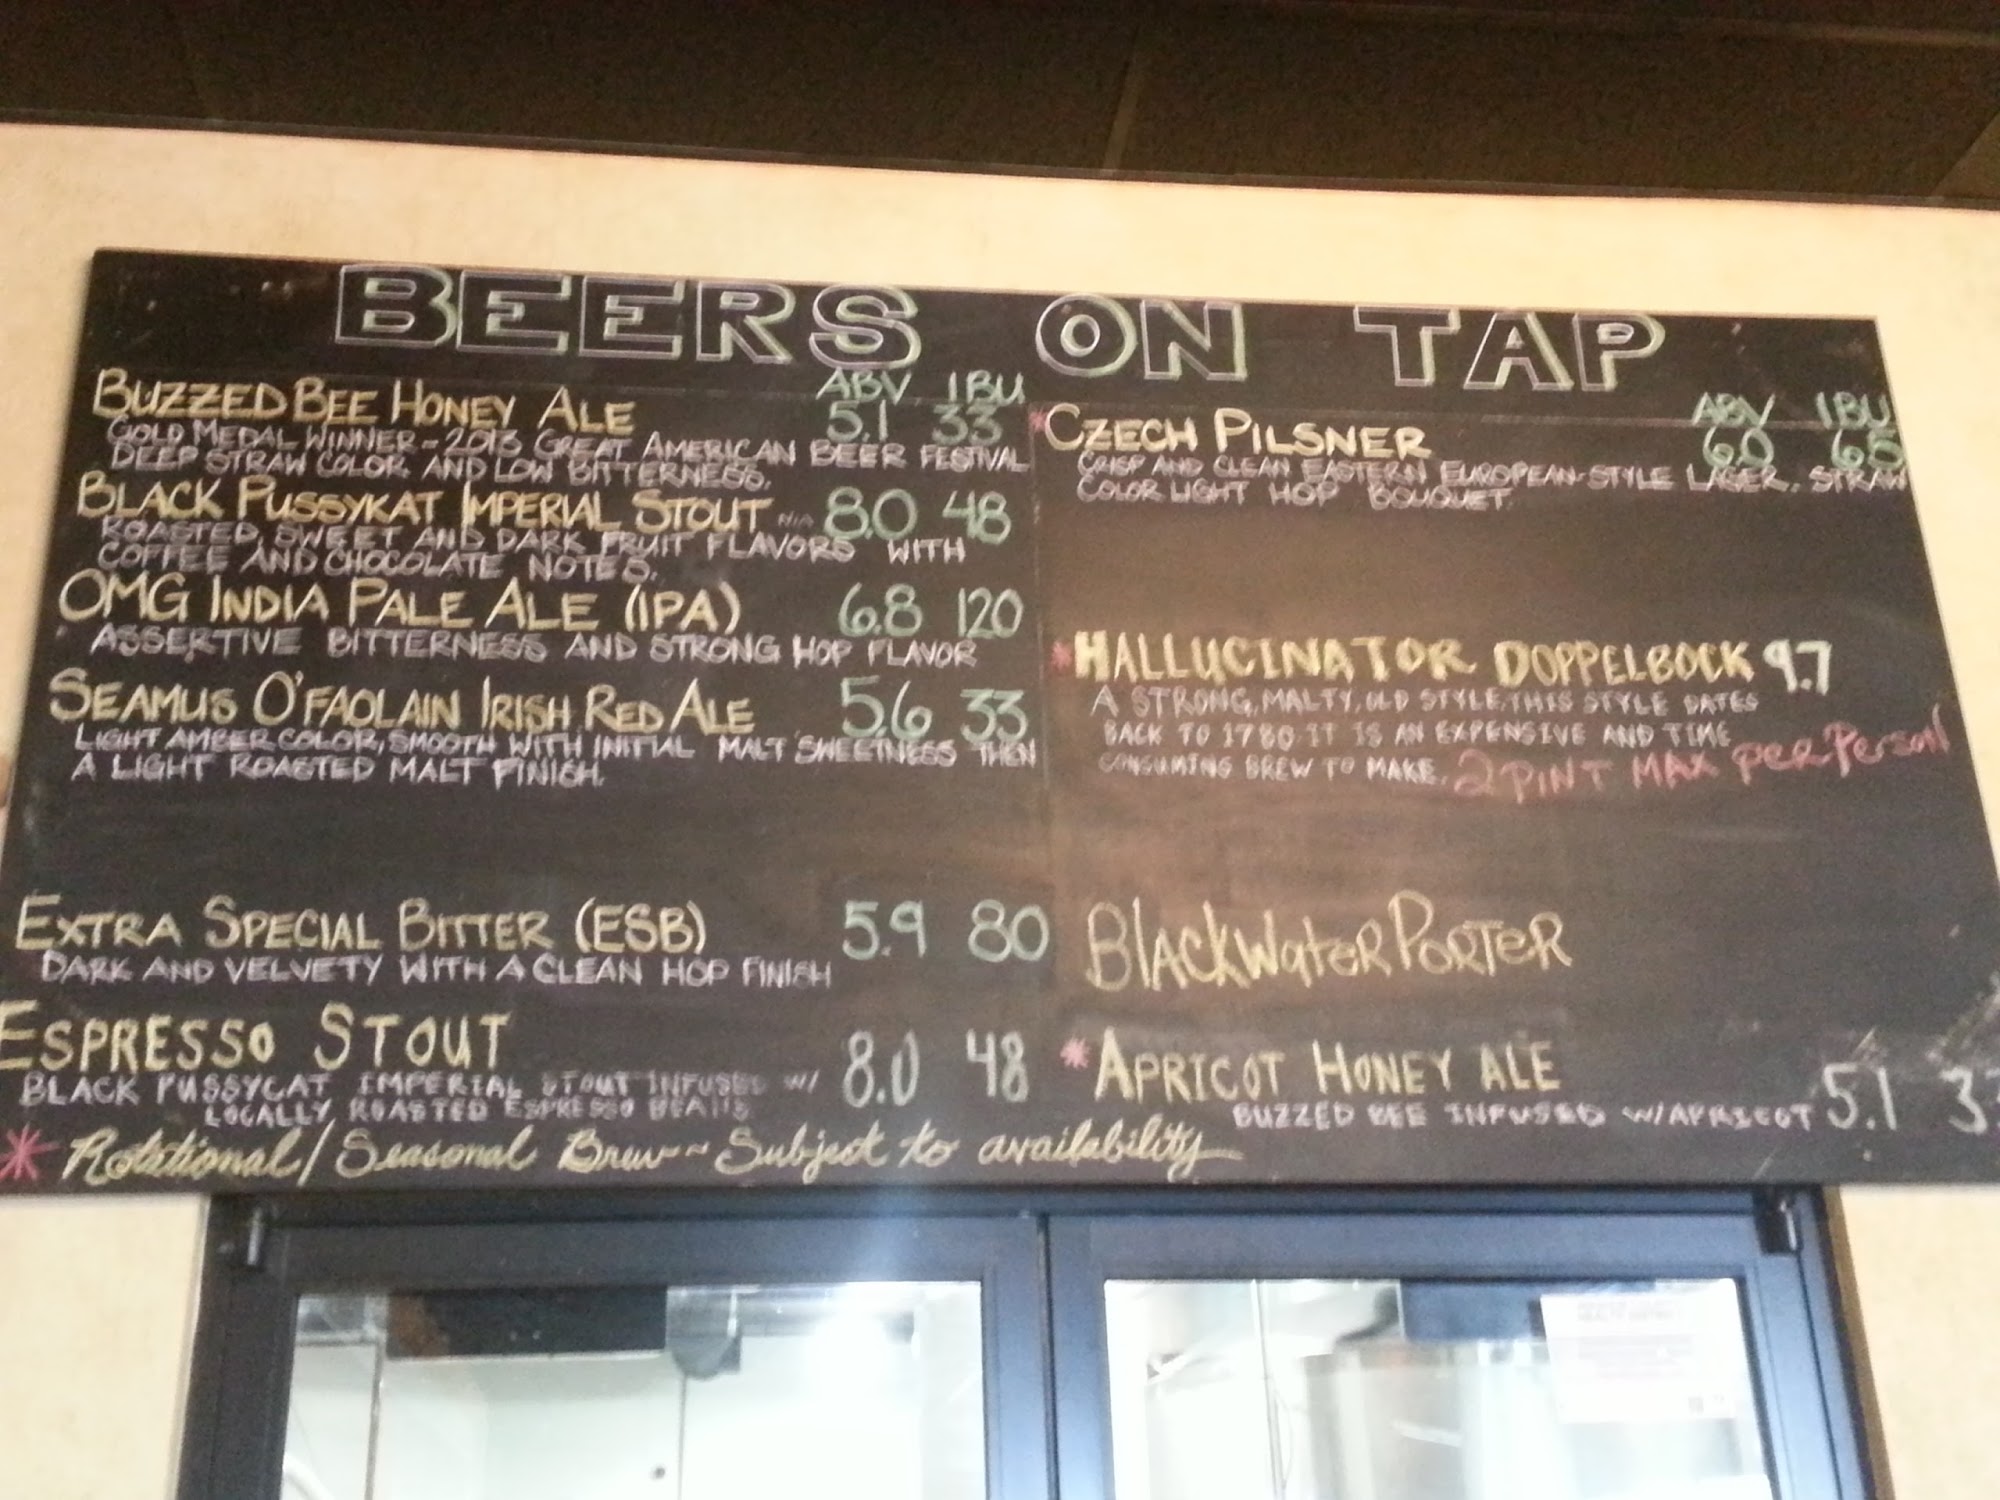 BEERS ON TAP
ABV IBU
BUZZED BEE HONEY ALE 5.1 33
GOLD MEDAL WINNER - 2013 GREAT AMERICAN BEER FESTIVAL
DEEP STRAW COLOR AND LOW BITTERNESS.
BLACK PUSSYKAT IMPERIAL STOUT 8.0 48
ROASTED, SWEET AND DARK FRUIT FLAVORS WITH
COFFEE AND CHOCOLATE NOTES.
OMG INDIA PALE ALE (IPA) 6.8 120
ASSERTIVE BITTERNESS AND STRONG HOP FLAVOR
SEAMUS O'FAOLAIN IRISH RED ALE 5.6 33
LIGHT AMBER COLOR, SMOOTH WITH INITIAL MALT SWEETNESS THEN
A LIGHT ROASTED MALT FINISH.
EXTRA SPECIAL BITTER (ESB) 5.9 80
DARK AND VELVETY WITH A CLEAN HOP FINISH
ESPRESSO STOUT 8.0 48
BLACK PUSSYCAT IMPERIAL STOUT INFUSED W/
LOCALLY ROASTED ESPRESSO BEANS
ABV IBU
*CZECH PILSNER 6.0 65
CRISP AND CLEAN EASTERN EUROPEAN-STYLE LAGER. STRAW
COLOR LIGHT HOP BOUQUET.
*HALLUCINATOR DOPPELBOCK 9.7
A STRONG, MALTY, OLD STYLE, THIS STYLE DATES
BACK TO 1780. IT IS AN EXPENSIVE AND TIME
CONSUMING BREW TO MAKE. 2 PINT MAX per Person
BlackWater PORTER
*APRICOT HONEY ALE
BUZZED BEE INFUSED W/APRICOT 5.1
* Rotational/Seasonal Brew ~ Subject to availability